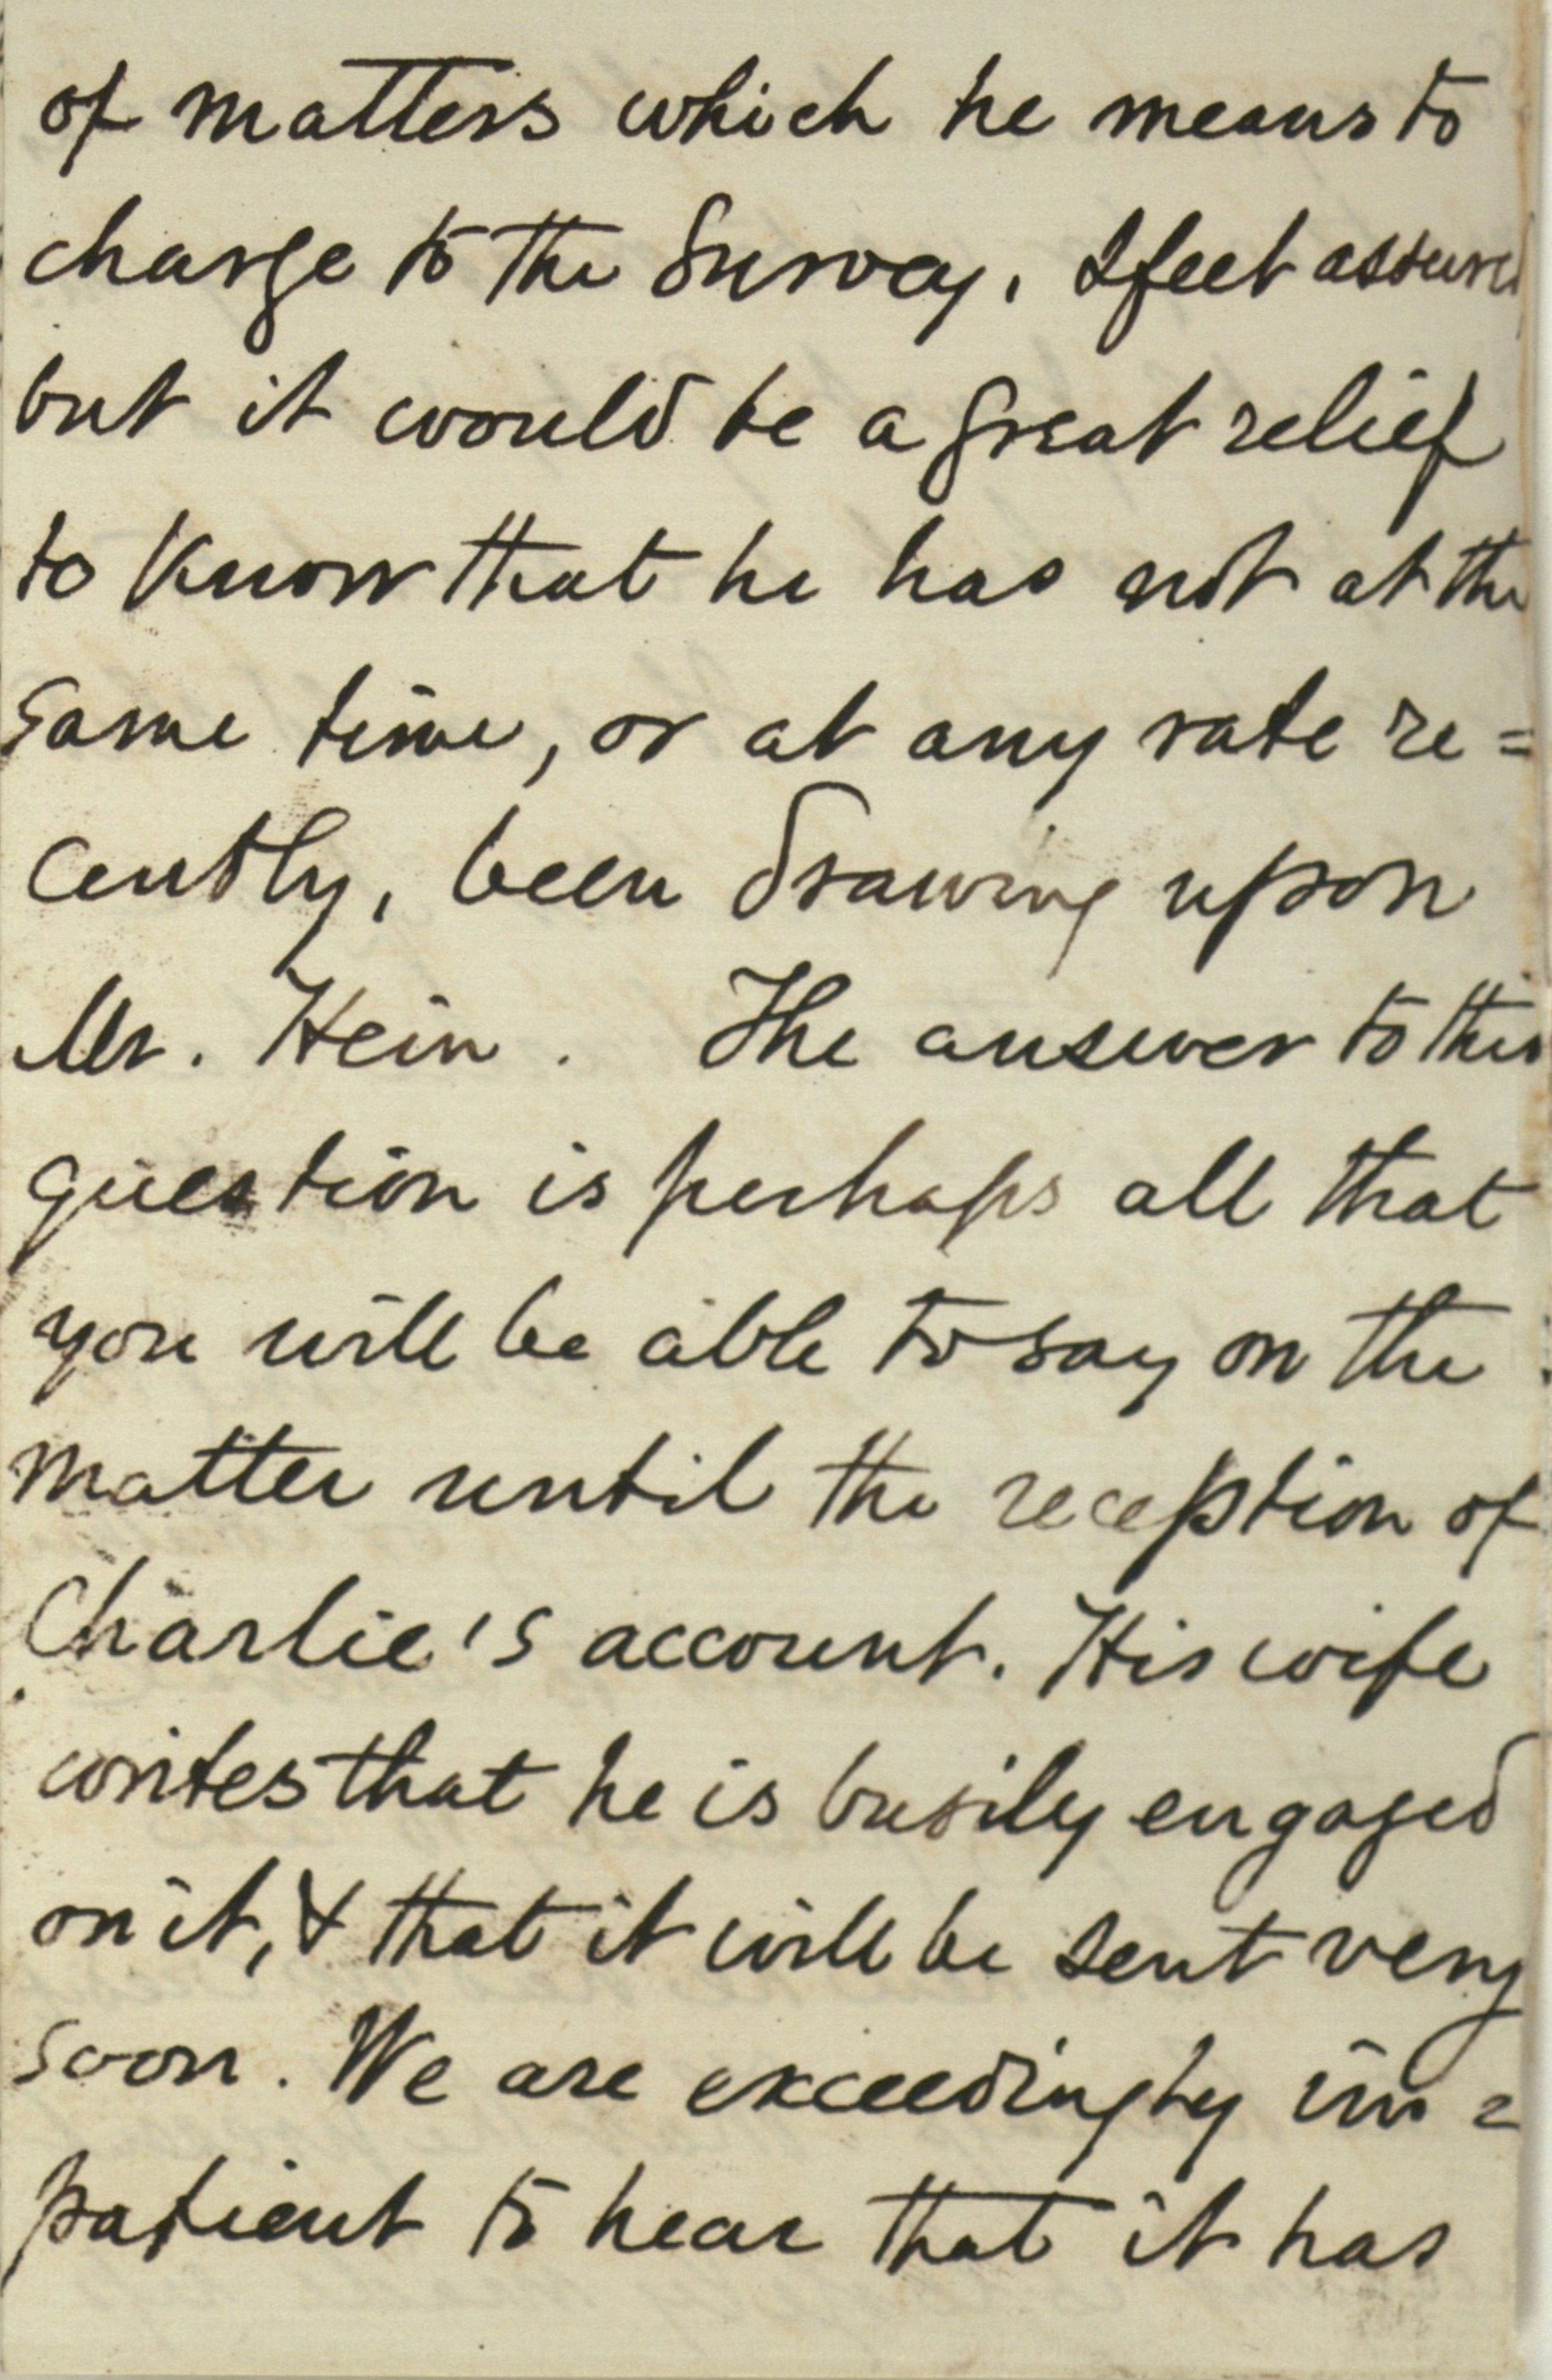 of matters which he means to
charge to the Survey, I feel assured
but it would be a great relief
to know that he has not at the
same time, or at any rate re=
cently, been drawing upon
Mr. Hein. The answer to this
question is perhaps all that
you will be able to say on the
matter until the reception of
Charlie's account. His wife
writes that he is busily engaged
on it, & that it will be sent very
soon. We are exceedingly im=
patient to hear that it has